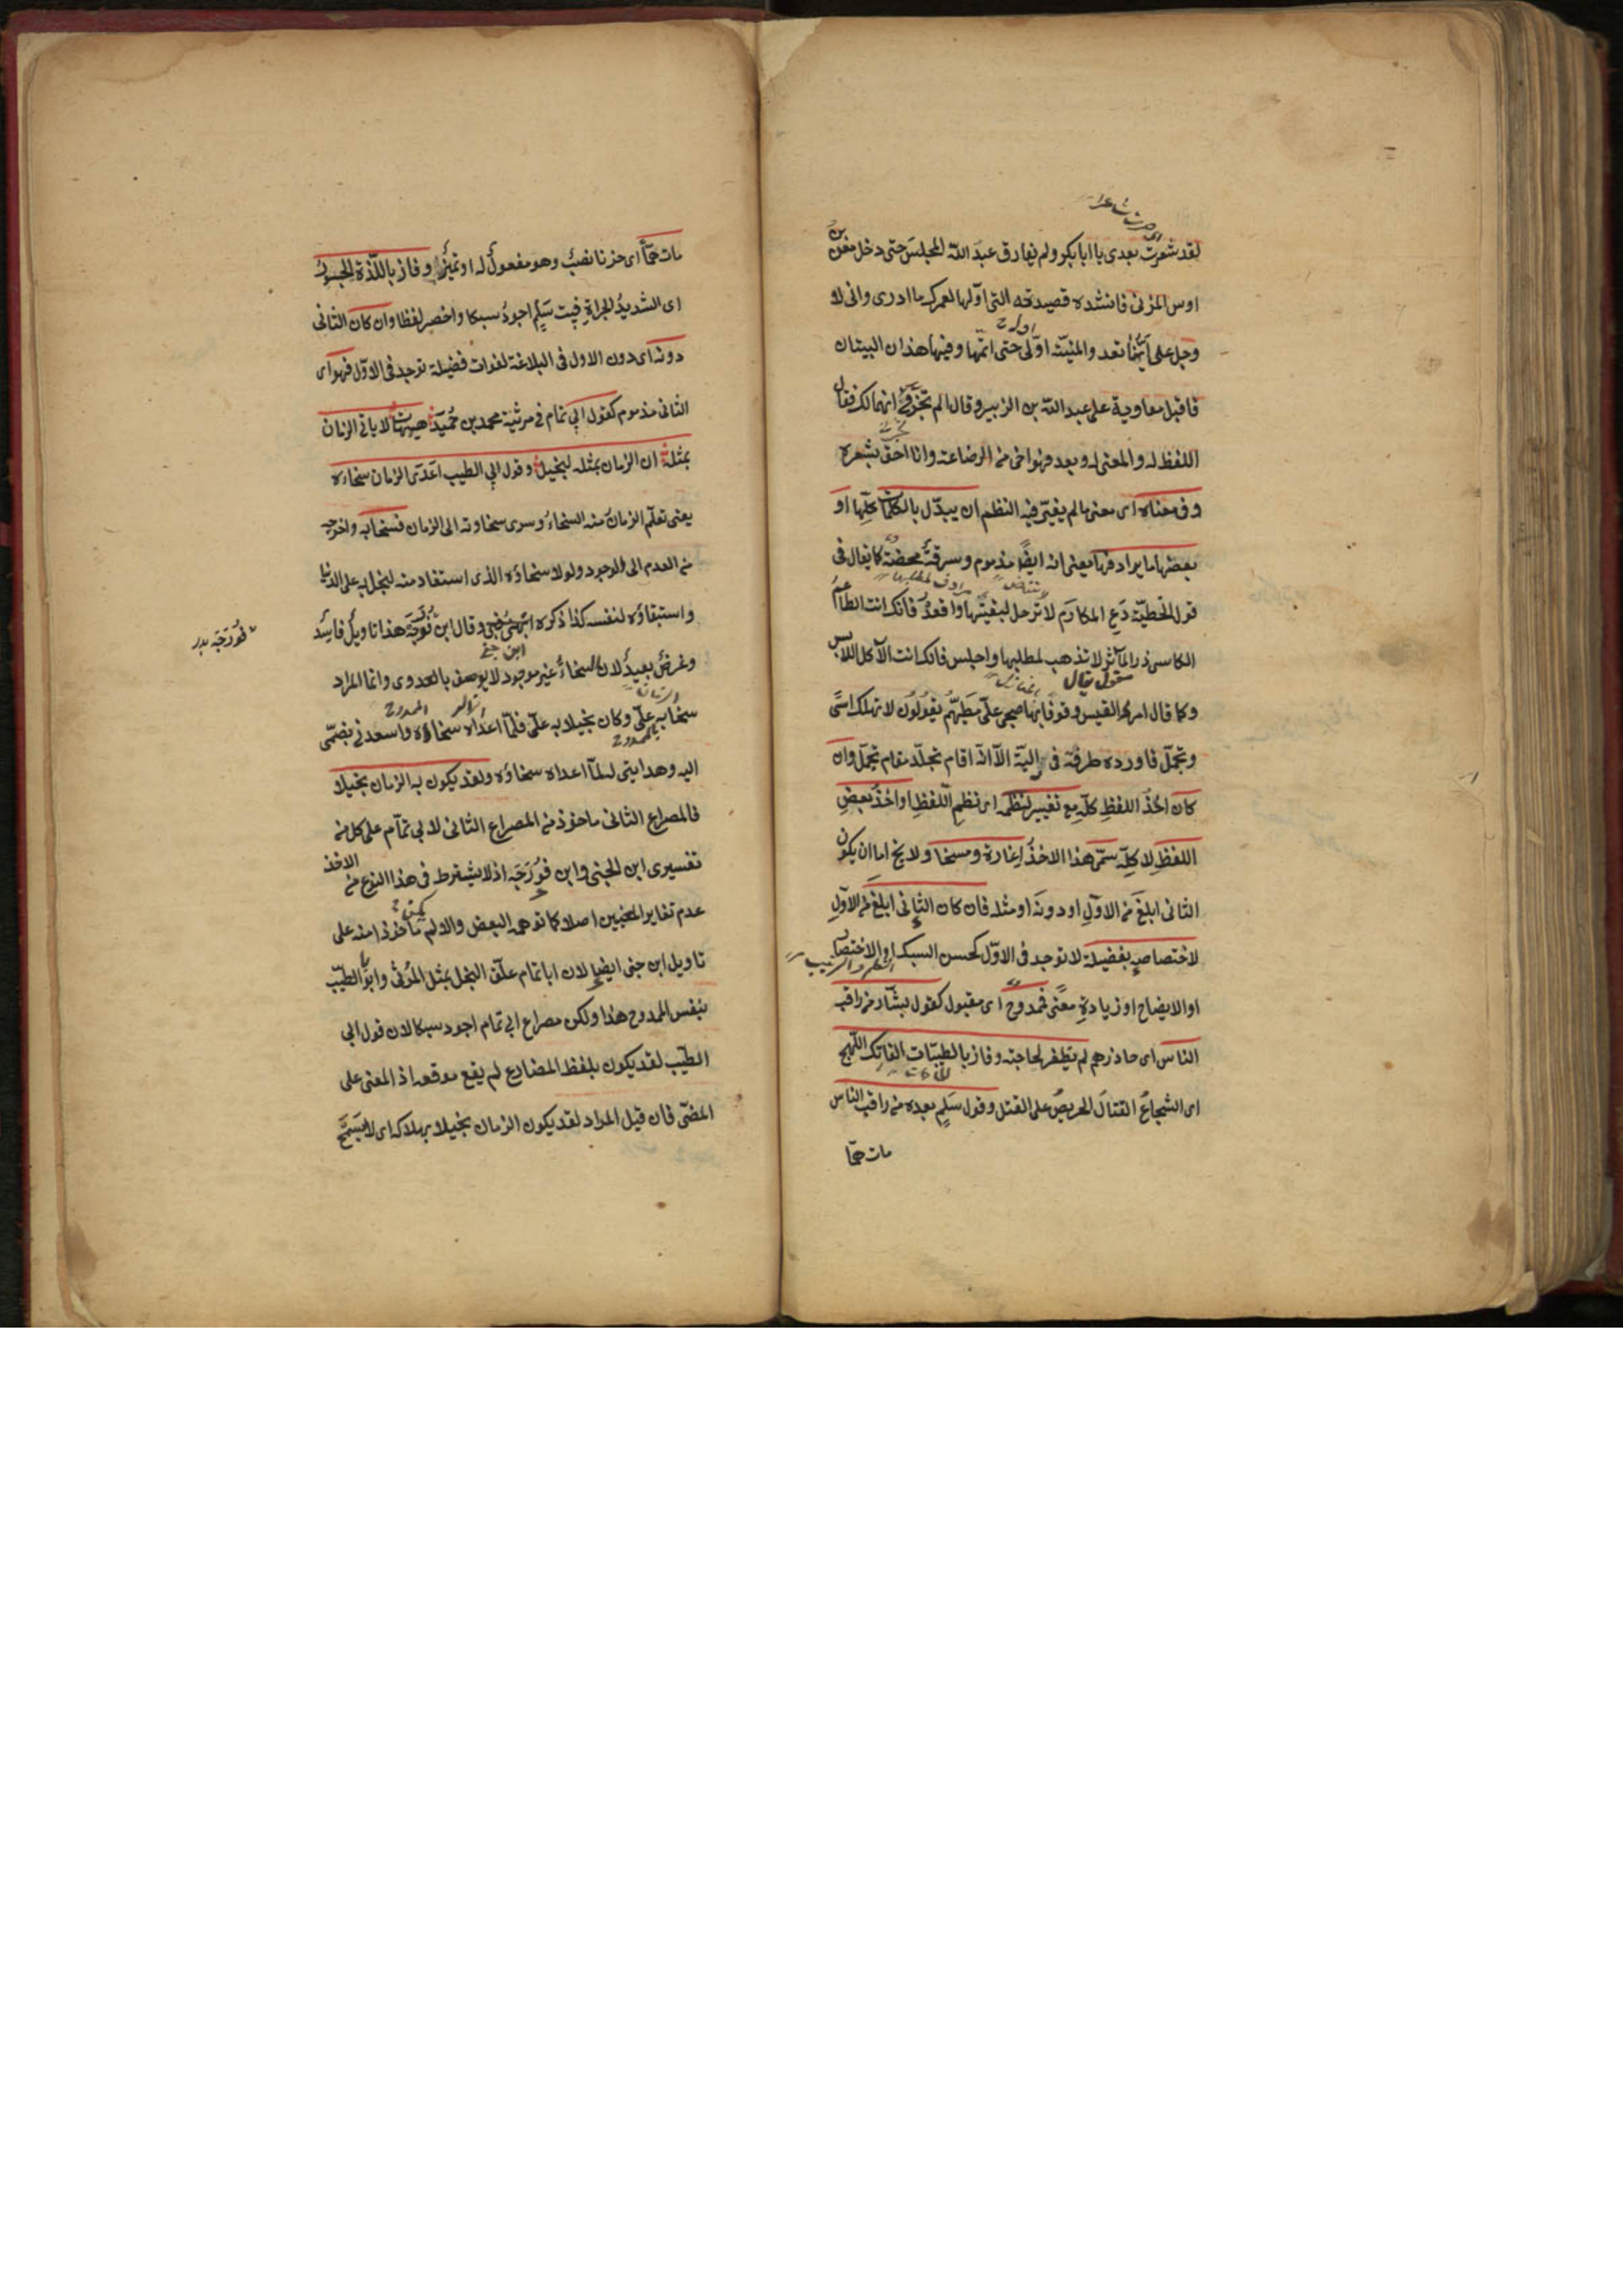 لقد شعرت بعدى يا ابا بكر ولم يفارق عبد الله المجلس حتى دخل معن بن
اوس المزنى فانشده قصيدته التى اولها لعمرك ما ادرى وانى لا
وجل على اينا تعد والمنية اول حتى اتمها وفيها هذان البيتان
فاقبل معاوية على عبد الله بن الزبير وقال الم تخبرنى انهما لك فقال
اللفظ له والمعنى لى وبعد فهو اخى من الرضاعة وانا احق بشعره
وفى معناه اى معنى ما لم يغير فيه النظم ان يبدل بالكلمات كلها او
بعضها ما يرادفها يعنى انه ايضا مذموم وسرقة محضة كما يقال فى
قول الحطيئة دع المكارم لا ترحل لبغيتها واقعد فانك انت الطاعم
الكاسى ذر المآثر لا تذهب لمطلبها واجلس فانك انت الآكل اللابس
مقول يقال
وكما قال امرئ القيس وقوفا بها صحبى على مطيهم يقولون لا تهلك اسى
وتجمل فاورده طرفة فى داليته الا انه اقام تجلد مقام تجمل وان
كان اخذ اللفظ كله مع تغيير لنظمه اى نظم اللفظ او اخذ بعض
اللفظ لا كله سمى هذا الاخذ اغارة ومسخا ولا يخ اما ان يكون
الثانى ابلغ من الاول او دونه او مثله فان كان الثانى ابلغ من الاول
لاختصاصه بفضيلة لا توجد فى الاول كحسن السبك او الاختصار
او الايضاح او زيادة معنى فممدوح اى مقبول كقول بشار من راقب
الناس اى حاذرهم لم يظفر بحاجته وفاز بالطيبات الفاتك اللهج
اى الشجاع القتال الحريص على القتل وقول سلم بعده من راقب الناس
مات هما
مات هما اى حزنا نصب وهو مفعول له او تميز وفاز باللذة الجسور
اى الشديد الجراة فبيت سلم اجود سبكا واخصر لفظا وان كان الثانى
دونه اى دون الاول فى البلاغة لفوات فضيلة توجد فى الاول فهو اى
الثانى مذموم كقول ابى تمام فى مرثية محمد بن حميد هيهات لا ياتى الزمان
بمثله ان الزمان بمثله لبخيل وقول ابى الطيب اعدى الزمان سخاؤه
يعنى تعلم الزمان منه السخاء وسرى سخاوته الى الزمان فسخا به واخرجه
من العدم الى الوجود ولولا سخاؤه الذى استفاد منه لبخل به على الدنيا
واستبقاؤه لنفسه كذا ذكره ابن جنى وقال ابن فورجة هذا تاويل فاسد
فورجة بدر
ابن جنى
وغرض بعيد لان السخاء غير موجود لا يوصف بالعدوى وانما المراد
الممدوح
سخا به على وكان بخيلا به على فلما اعداه سخاؤه واسعدنى بضمى
اليه وهدايتى لما اعداه سخاؤه ولقد يكون به الزمان بخيلا
فالمصراع الثانى ماخوذ من المصراع الثانى لابى تمام على كل من
تفسيرى ابن الجنى وابن فورجة اذ لا يشترط فى هذا النوع من الاخذ
عدم تغاير المعنيين اصلا كما توهمه البعض والا لم يكن ماخوذا منه على
تاويل ابن جنى ايضا لان ابا تمام علق البخل بمثل المرثى وابو الطيب
بنفس الممدوح هذا ولكن مصراع ابى تمام اجود سبكا لان قول ابى
الطيب لقد يكون بلفظ المضارع لم يقع موقعه اذ المعنى على
المضى فان قيل المراد لقد يكون الزمان بخيلا بهلاكه اى لا يسمح